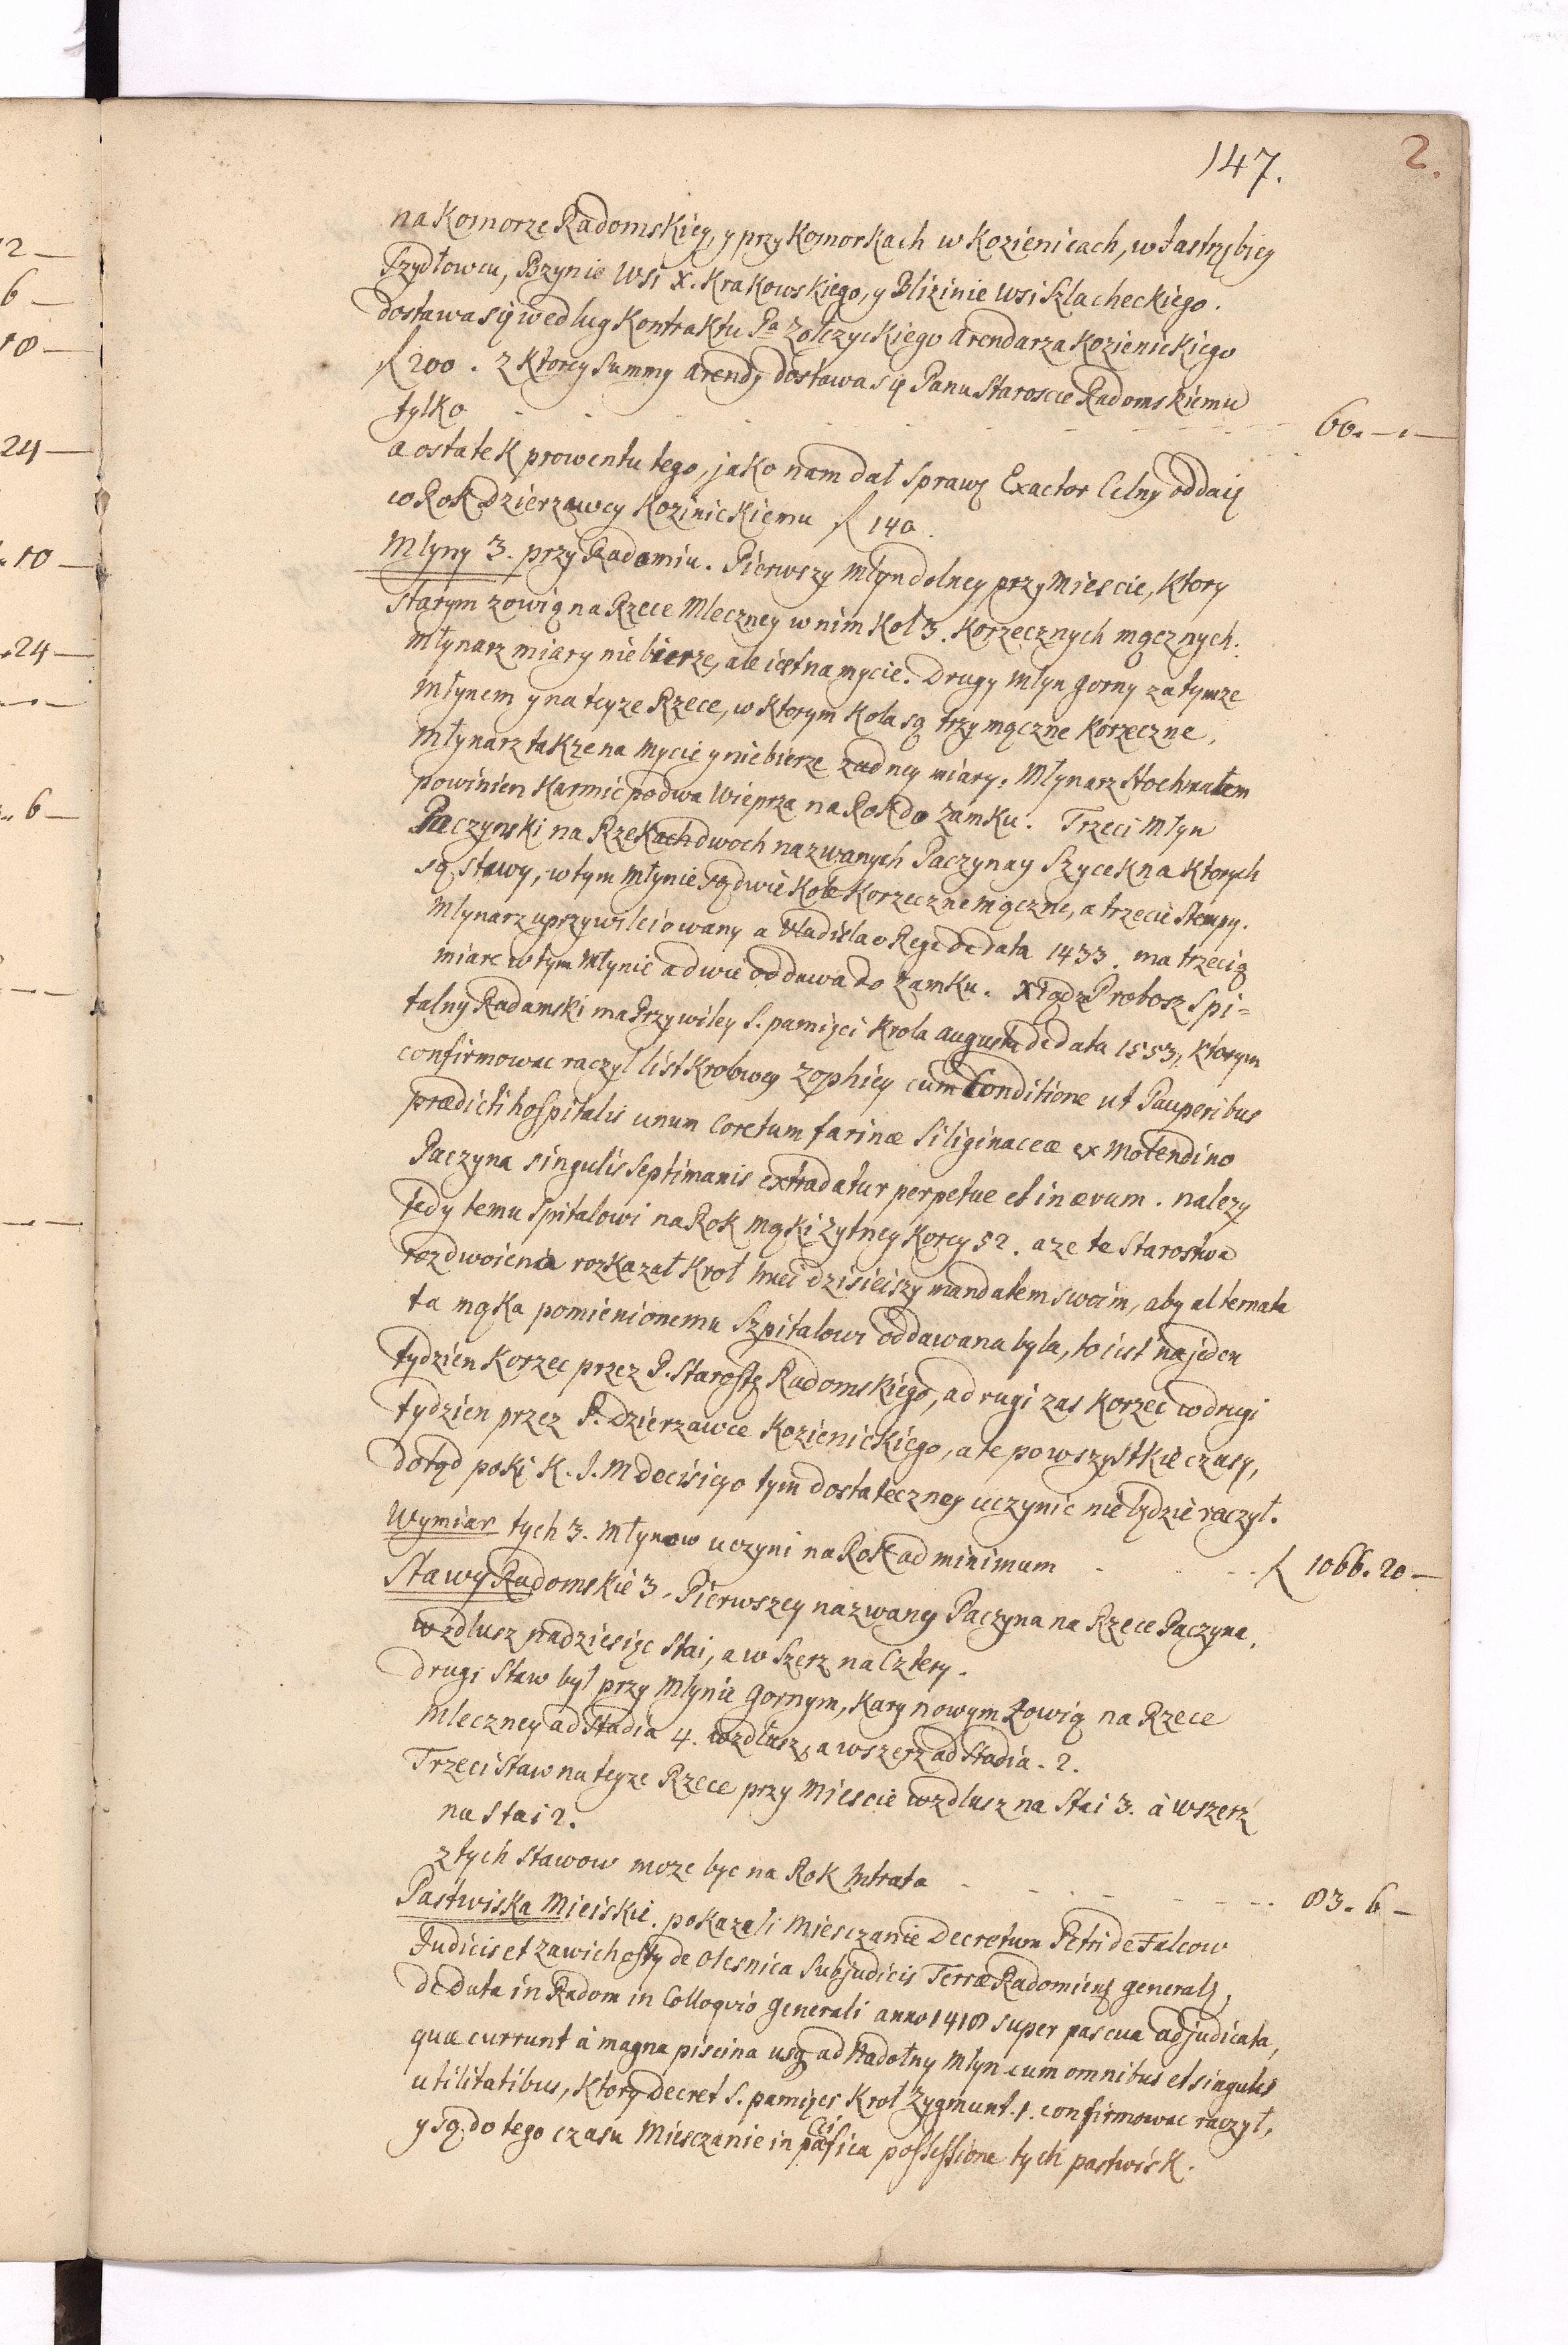 147.
2.
na Komorze Radomskiey, y przy Komorkach w Kozienicach, w Jastrzębiey
Szydłowcu, Bzynie Wsi X. Krakowskiego, y Blizinie Wsi Szlacheckiego.
dostawa się według Kontraktu Pa Zołczyckiego Arendarza Kozienickiego
f 200. z Ktorey Summy Arendy dostawa się Panu Staroscie Radomskiemu
tylko - - - - - - 60. - . -
a ostatek prowentu tego, jako nam dał Sprawę Exactor Celny oddaię
co Rok Dzierzawcy Kozinickiemu f 140.
Młyny 3. przy Radomiu. Pierwszy Młyn dolney przy Miescie, Ktory
Starym zowią na Rzece Mleczney w nim Kol 3. Korzecznych mącznych.
Młynarz miary nie bierze, ale iest na mycie. Drugy Młyn gorny za tymze
Młynem y na teyze Rzece, w Ktorym Kola są trzy mączne Korzeczne,
Młynarz takze na Mycie y nie bierze zadney miary. Młynarz Stochmalem
powinien Karmic po dwa Wieprza na Rok do Zamku. Trzeci Młyn
Paczynski na Rzekach dwoch nazwanych Paczyna y Szycek na Ktorych
są Stawy, w tym Młynie są dwie Kole Korzeczne mączne, a trzecie Stempy.
Młynarz uprzywileiowany a Vladislao Rege de data 1433. ma trzecią
miare w tym Młynie a dwie oddawa do Zamku. Xiądz Probosz Spi=
talny Radamski ma Przywiley S. pamięci Krola Augusta de data 1553, Ktorym
confirmowac raczył list Krolowey Zophiey cum Conditione ut Pauperibus
prædicti hospitalis unum Coretum farinæ Siliginaceæ ex Molendino
Paczyna singulis Septimanis extradatur perpetue et in ævum. nalezy
tedy temu Spitalowi na Rok mąki zytney Korcy 52. a ze te Starostwa
rozdwoienia rozkazał Krol Jmci dzisieiszy mandatem swoim, aby alternata
ta mąka pomienionemu Szpitalowi oddawana byla, to iest na jeden
tydzien Korzec przez P. Starostę Radomskiego, a drugi zas Korzec w drugi
tydzien przez P. Dzierzawce Kozienickiego, a te po wszystkie czasy,
dotąd poki K. J. M decisiey o tym dostateczney uczynic nie będzie raczył.
Wymiar tych 3. Młynow uczyni na Rok ad minimum - - - f 1066. 20 -
Stawy Radomskie 3. Pierwszey nazwany Paczyna na Rzece Paczyna,
wzdłusz na dziesięc Stai, a w Szerz na Cztery.
drugi Staw był przy Młynie Gornym, Kary nowym Zowią na Rzece
Mleczney ad Stadia 4. wzdłusz, a wszerz ad Stadia. 2.
Trzeci Staw na teyze Rzece przy Miescie wzdłusz na Stai 3. à wszerz
na Stai 2.
z tych Stawow moze byc na Rok Intrata - - - - - 83. 6 -
Pastwiska Mieiskie. pokazali Miesczanie Decretum Petri de Falcow
Judicis et Zawichosty de Olesnica Subjudicis Terræ Radomiens general,
de Data in Radom in Colloqvio generali anno 1418 super pascua adjudicata,
quæ currunt à magna piscina usq ad Nadolny Młyn cum omnibus et singulis
utilitatibus, Ktory Decret S. pamięci Krol Zygmunt. 1. confirmowac raczył,
y są do tego czasu Miesczanie in pacifica possessione tych pastwisk.